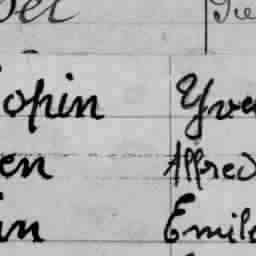 opin Yve
en Alfred
in Emile